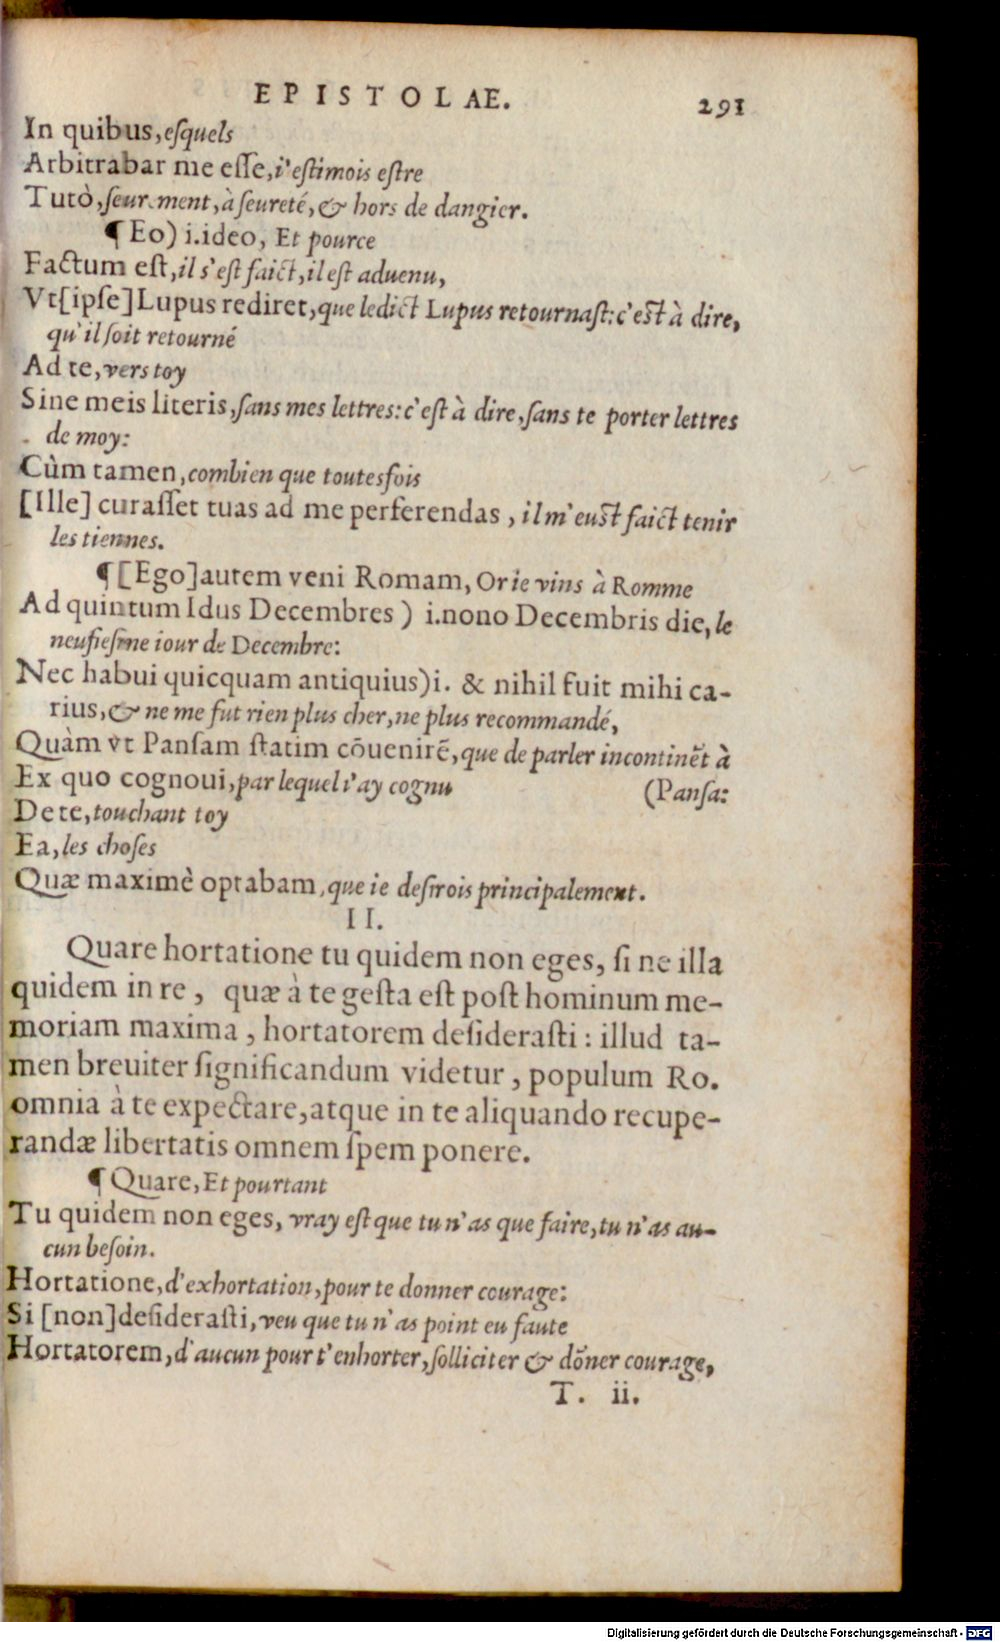 EPISTOLAE. 291
In quibus, eſquels
Arbitrabar me eſſe, i'eſtimois eſtre
Tutò, ſeurement, à ſeureté, & hors de dangier.
¶ Eo) i. ideo, Et pource
Factum eſt, il s'eſt faict, il eſt aduenu,
Vt [ipſe] Lupus rediret, que ledict Lupus retournaſt: c'eſt à dire,
qu'il ſoit retourné
Ad te, vers toy
Sine meis literis, ſans mes lettres: c'eſt à dire, ſans te porter lettres
de moy:
Cùm tamen, combien que toutesfois
[Ille] curaſſet tuas ad me perferendas, il m'euſt faict tenir
les tiennes.
¶ [Ego] autem veni Romam, Or ie vins à Romme
Ad quintum Idus Decembres) i. nono Decembris die, le
neufieſme iour de Decembre:
Nec habui quicquam antiquius) i. & nihil fuit mihi ca-
rius, & ne me fut rien plus cher, ne plus recommandé,
Quàm vt Panſam ſtatim cōuenirē, que de parler incontinēt à
Ex quo cognoui, par lequel i'ay cognu (Panſa:
De te, touchant toy
Ea, les choſes
Quæ maximè optabam, que ie deſirois principalement.
II.
Quare hortatione tu quidem non eges, ſi ne illa
quidem in re, quæ à te geſta eſt poſt hominum me-
moriam maxima, hortatorem deſideraſti: illud ta-
men breuiter ſignificandum videtur, populum Ro.
omnia à te expectare, atque in te aliquando recupe-
randæ libertatis omnem ſpem ponere.
¶ Quare, Et pourtant
Tu quidem non eges, vray eſt que tu n'as que faire, tu n'as au-
cun beſoin.
Hortatione, d'exhortation, pour te donner courage:
Si [non] deſideraſti, veu que tu n'as point eu faute
Hortatorem, d'aucun pour t'enhorter, ſolliciter & dōner courage,
T. ii.
Digitalisierung gefördert durch die Deutsche Forschungsgemeinschaft - DFG